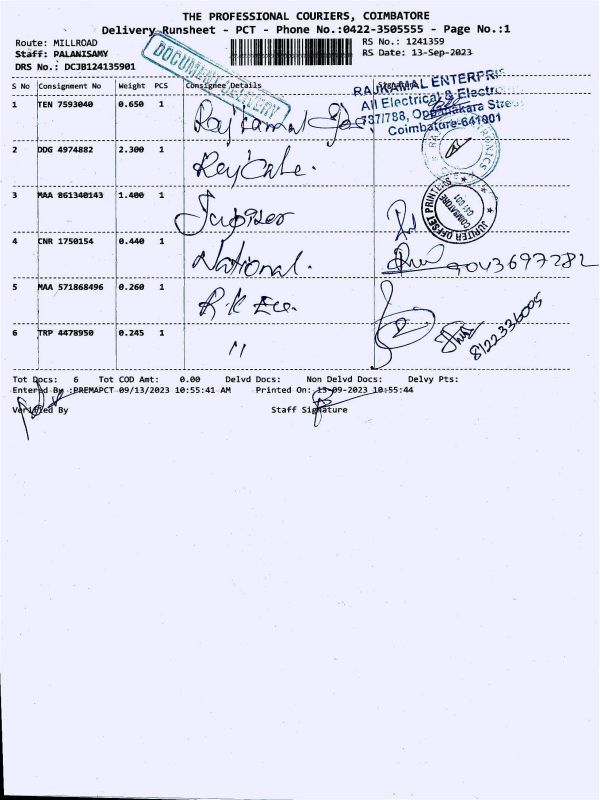 THE PROFESSIONAL COURIERS, COIMBATORE
Delivery Runsheet - PCT - Phone No.:0422-3505555 - Page No.:1
Route: MILLROAD RS No.: 1241359
Staff: PALANISAMY RS Date: 13-Sep-2023
DRS No.: DCJB124135901
DOCUMENT DELIVERY
S No Consignment No Weight PCS Consignee Details
RAJKAMAL ENTERPRI
All Electrical & Electro
787/788, Oppanakara Stree
Coimbatore-641001
1 TEN 7593040 0.650 1
2 DDG 4974882 2.300 1
3 MAA 861340143 1.400 1 Jupiter
JUPITER OFFSET PRINTERS
COIMBATORE
641 001
4 CNR 1750154 0.440 1 National. 9043697282
5 MAA 571868496 0.260 1 R.K Ele.
6 TRP 4478950 0.245 1 " 8122336005
Tot Docs: 6 Tot COD Amt: 0.00 Delvd Docs: Non Delvd Docs: Delvy Pts:
Entered By :PREMAPCT 09/13/2023 10:55:41 AM Printed On: 13-09-2023 10:55:44
Verified By Staff Signature